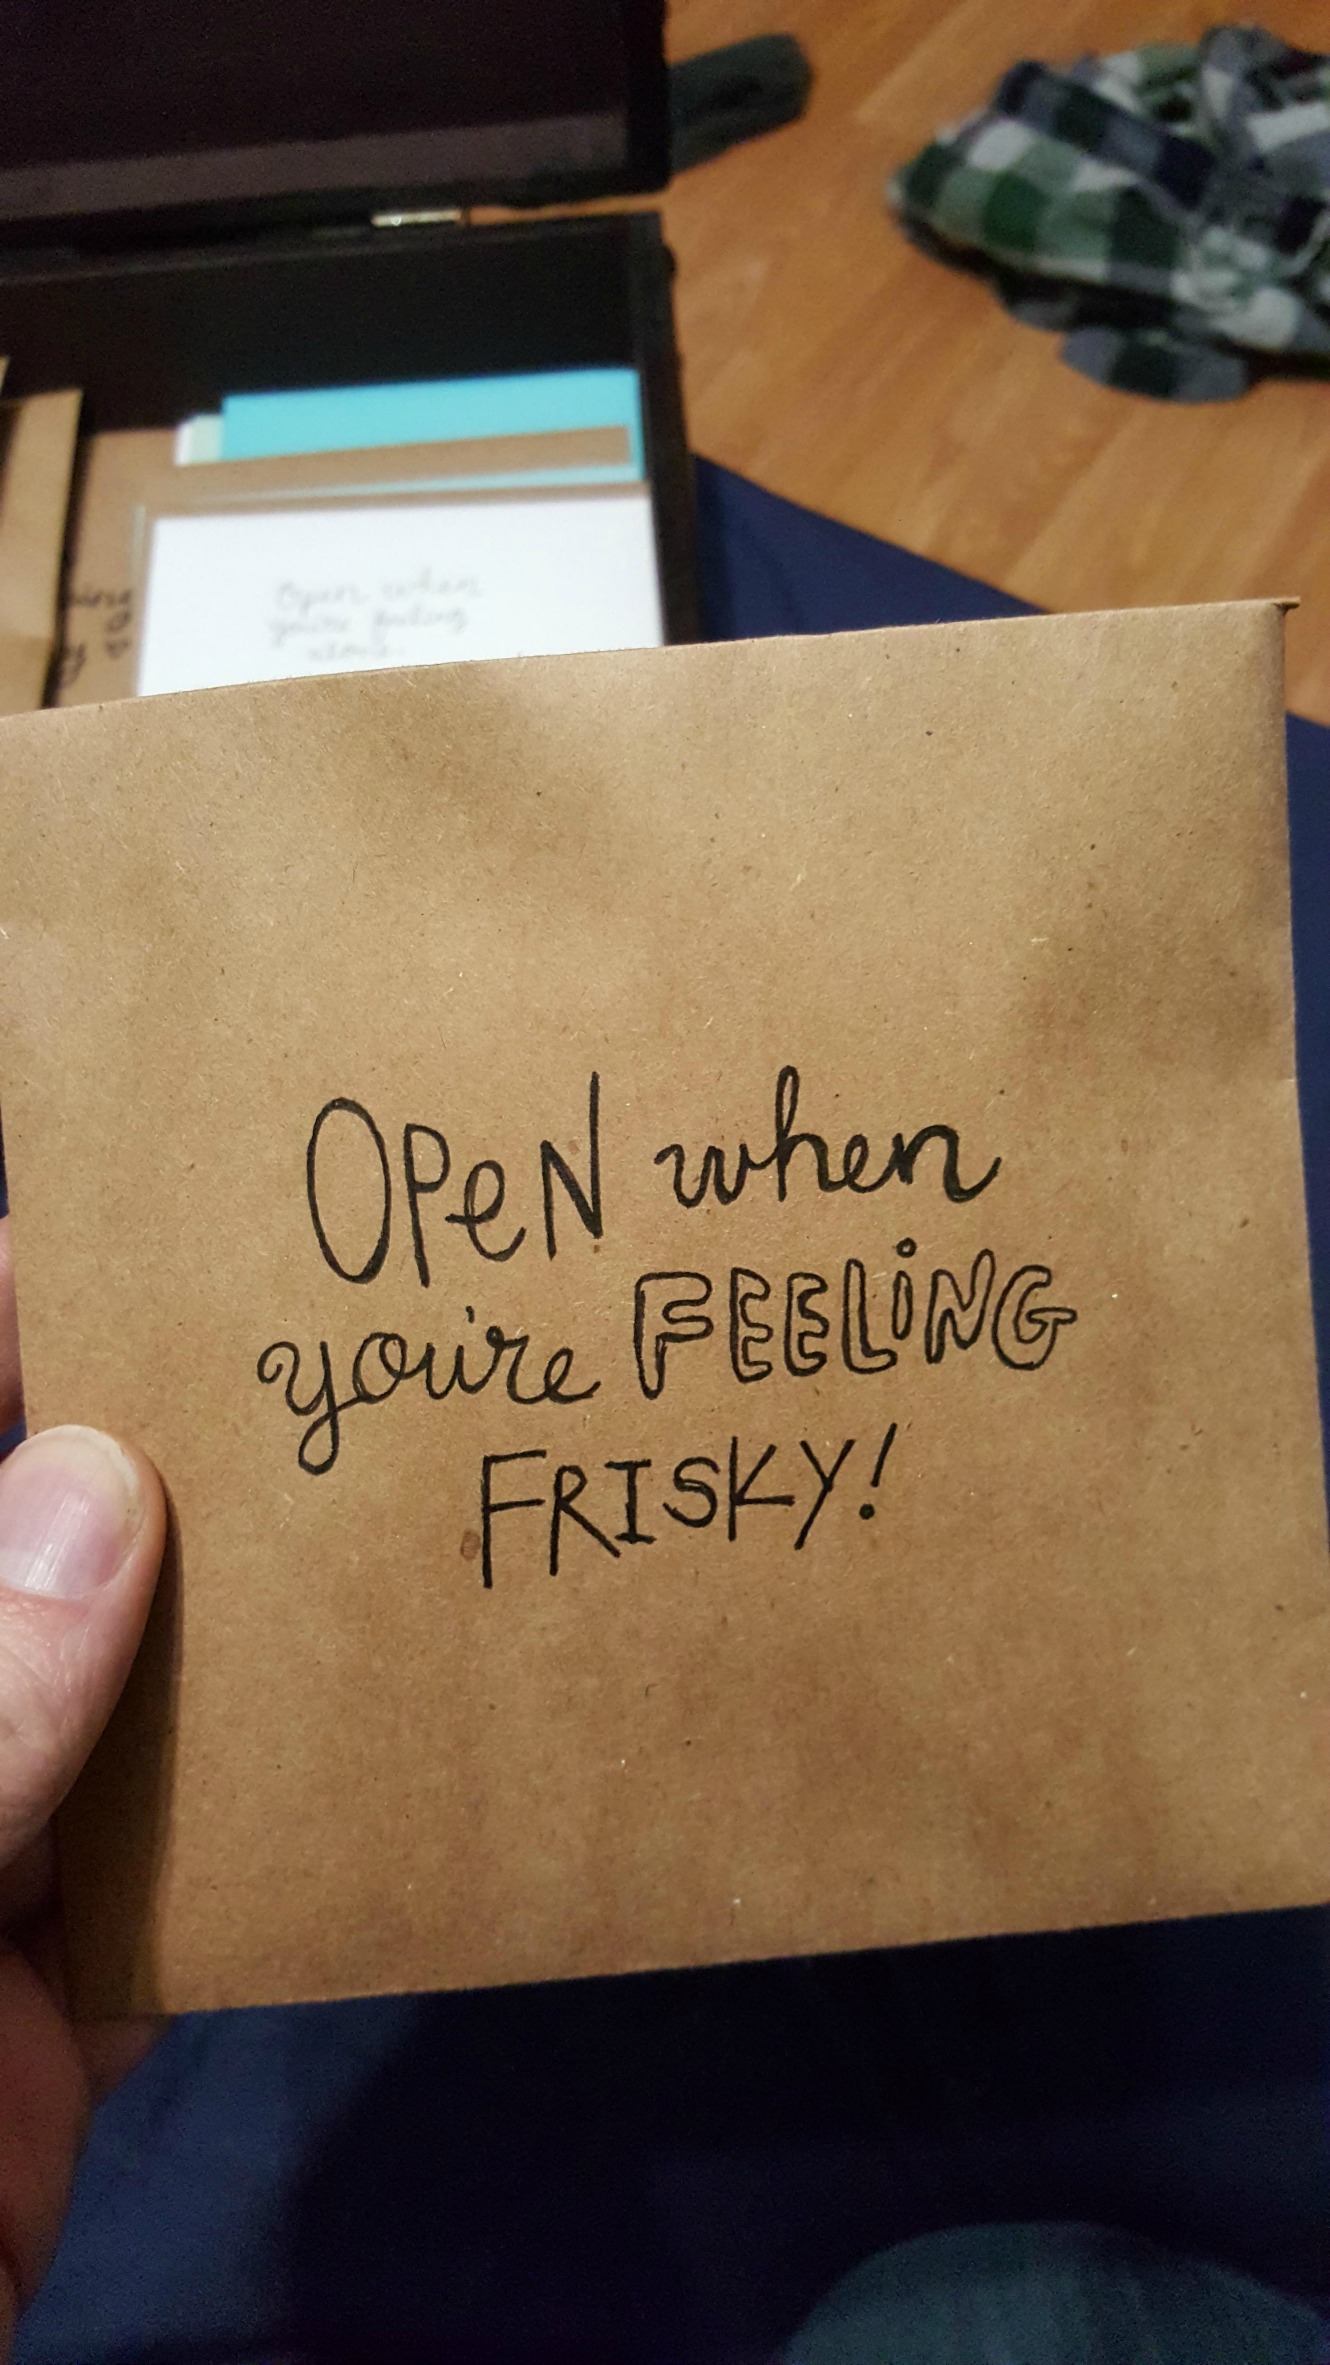 Open when
you're feeling
alone.
OPeN when
you're FEELiNG
FRISKY!